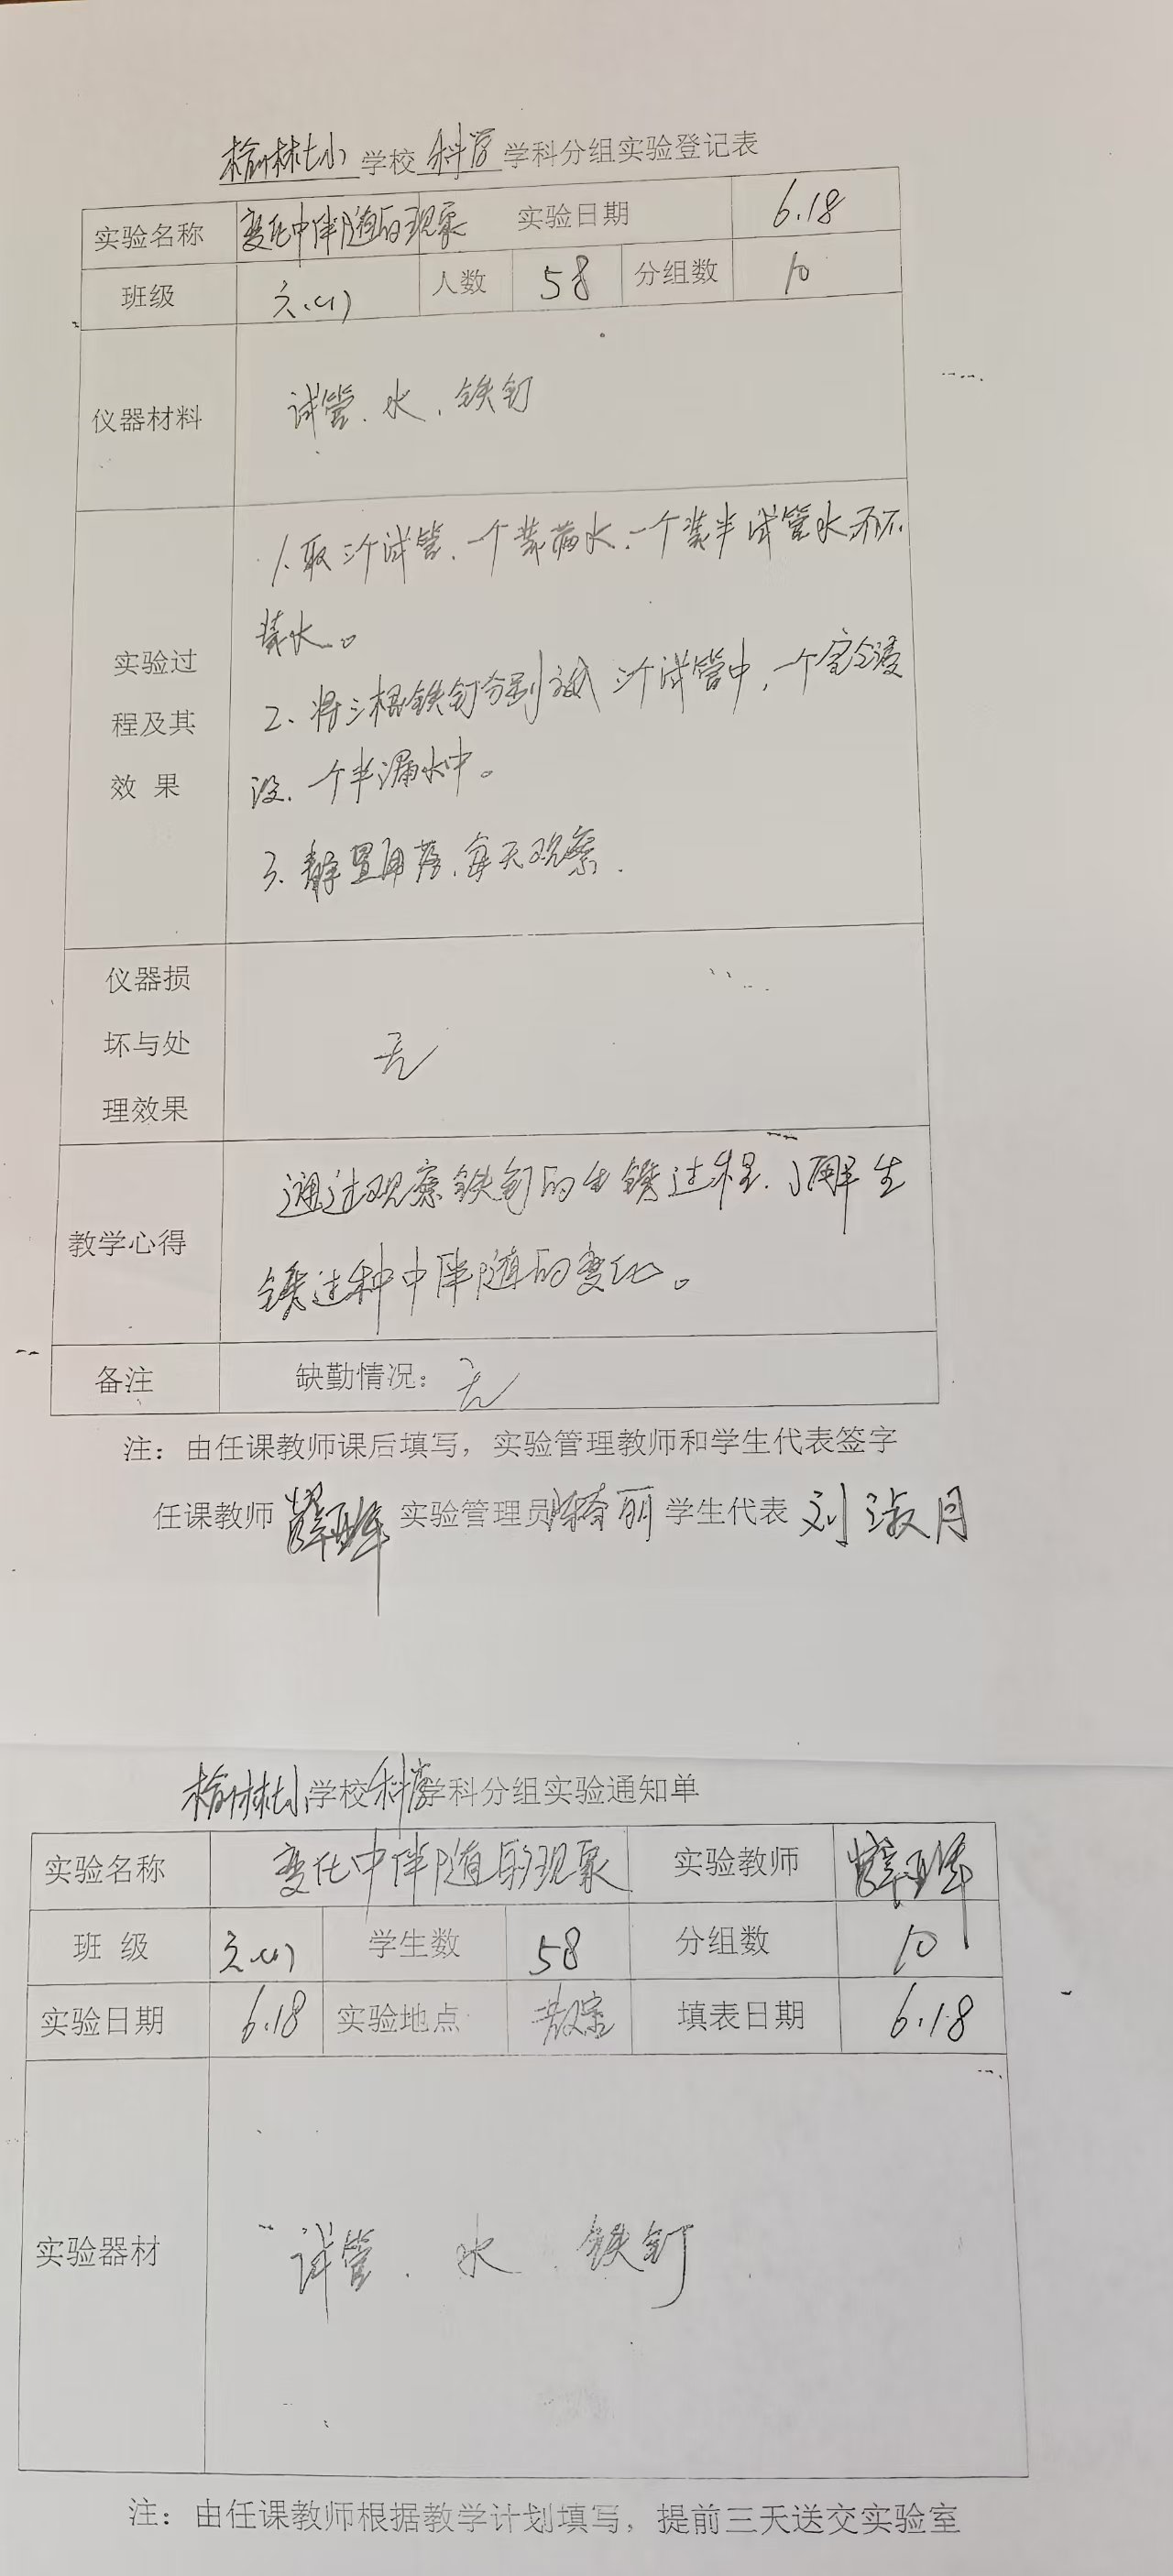 榆林七小学校科学学科分组实验登记表
实验名称 变化中伴随的现象 实验日期 6.18
班级 六(1) 人数 58 分组数 10
仪器材料 试管、水、铁钉
1.取三个试管、一个装满水、一个装半试管水
装水。
实验过
程及其
效 果
2、将三根铁钉分别 三个试管中,一个完全浸
没、一个半 水中。
3、静置 、每天观察.
仪器损
坏与处
理效果
无
教学心得
通过观察铁钉的生锈过程、了解生
锈过种中伴随的变化。
备注 缺勤情况: 无
注:由任课教师课后填写,实验管理教师和学生代表签字
任课教师 实验管理员 学生代表 刘淑月
榆林七小学校科学学科分组实验通知单
实验名称 变化中伴随的现象 实验教师
班 级 六(1) 学生数 58 分组数 10
实验日期 6.18 实验地点 教室 填表日期 6.18
实验器材 试管、水、铁钉
注:由任课教师根据教学计划填写,提前三天送交实验室